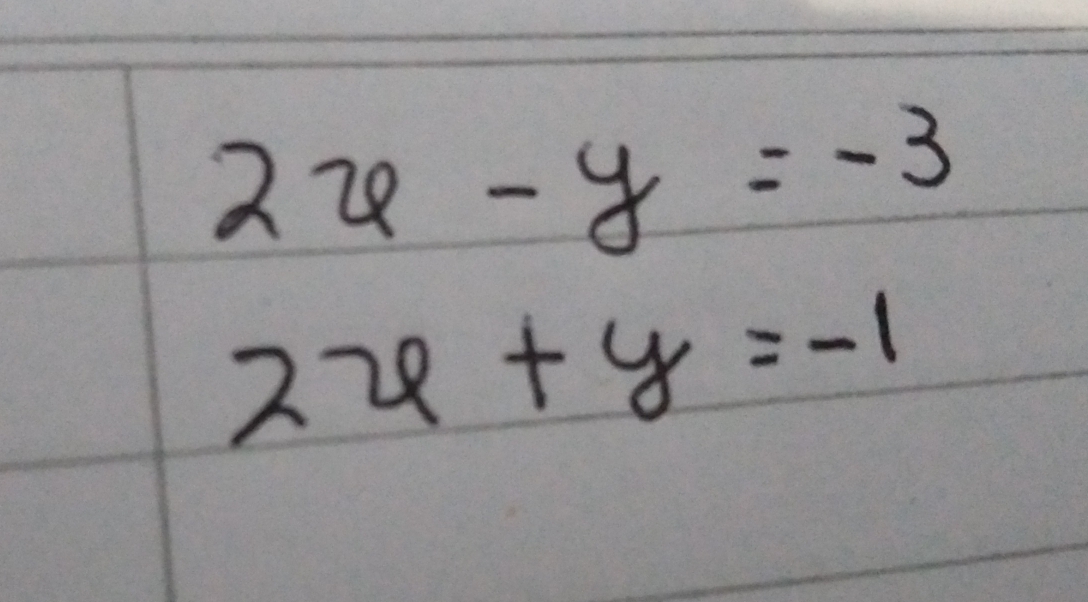 2x - y = -3
2x + y = -1